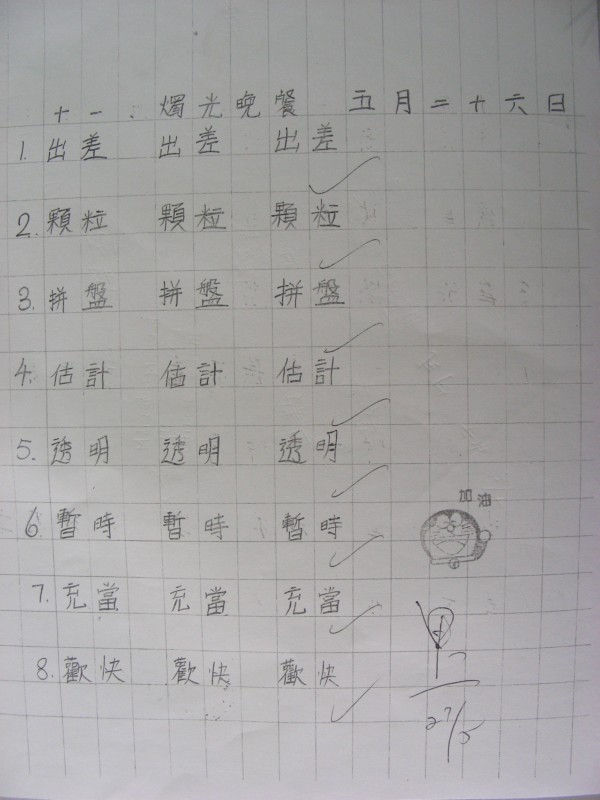 十一. 燭光晚餐 五月二十六日
1. 出差 出差 出差
2. 顆粒 顆粒 顆粒
3. 拼盤 拼盤 拼盤
4. 估計 估計 估計
5. 透明 透明 透明
加油
6. 暫時 暫時 暫時
7. 充當 充當 充當
8. 歡快 歡快 歡快
27/5